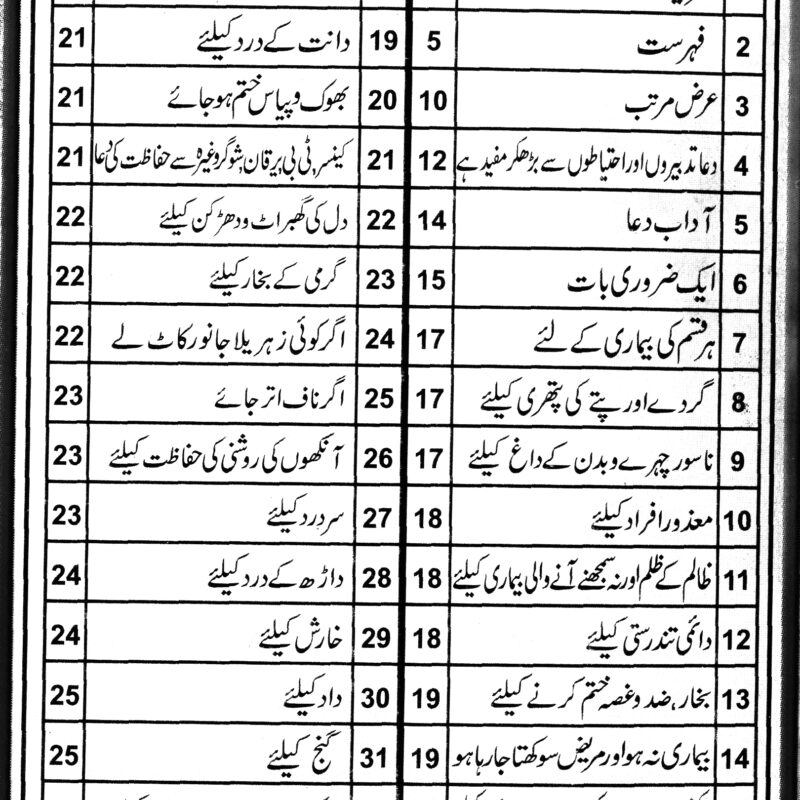 2 فہرست 5
3 عرض مرتب 10
4 دعا تدبیروں اور احتیاطوں سے بڑھکر مفید ہے 12
5 آداب دعا 14
6 ایک ضروری بات 15
7 ہر قسم کی بیماری کے لئے 17
8 گردے اور پتے کی پتھری کیلئے 17
9 ناسور چہرے و بدن کے داغ کیلئے 17
10 معذور افراد کیلئے 18
11 ظالم کے ظلم اور نہ سمجھنے آنے والی بیماری کیلئے 18
12 دائمی تندرستی کیلئے 18
13 بخار، ضد و غصہ ختم کرنے کیلئے 19
14 بیماری نہ ہو اور مریض سوکھتا جا رہا ہو 19
19 دانت کے درد کیلئے 21
20 بھوک و پیاس ختم ہو جائے 21
21 کینسر، ٹی بی، یرقان، شوگر وغیرہ سے حفاظت کی دعا 21
22 دل کی گھبراٹ و دھڑکن کیلئے 22
23 گرمی کے بخار کیلئے 22
24 اگر کوئی زہریلا جانور کاٹ لے 22
25 اگر ناف اتر جائے 23
26 آنکھوں کی روشنی کی حفاظت کیلئے 23
27 سر درد کیلئے 23
28 داڑھ کے درد کیلئے 24
29 خارش کیلئے 24
30 داد کیلئے 25
31 گنج کیلئے 25